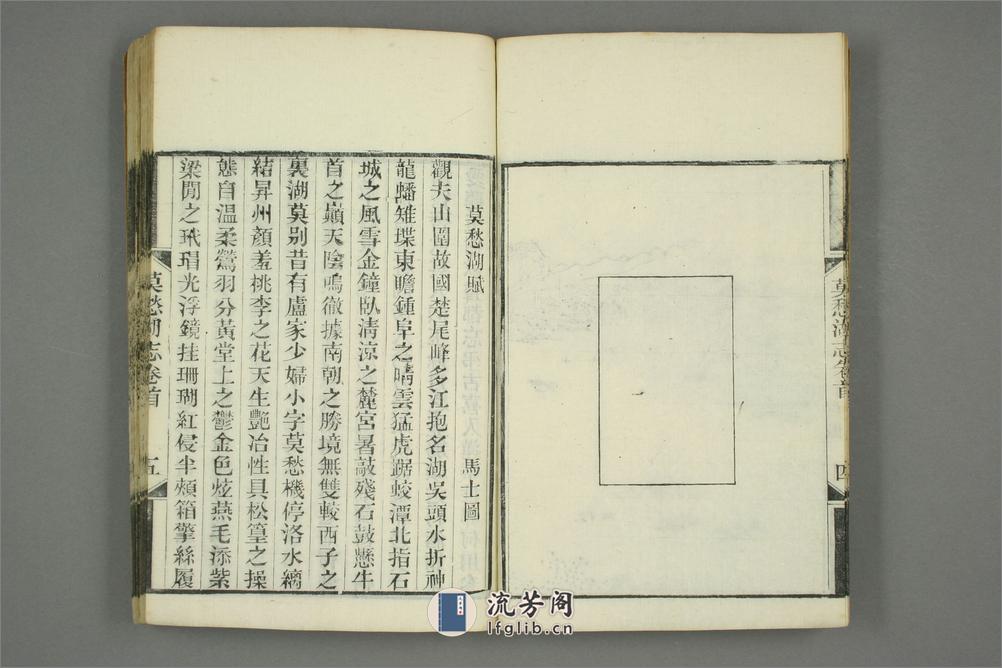 莫愁湖志卷首
四
莫愁湖賦 馬士圖
觀夫山圍故國楚尾峰多江抱名湖吳頭水折神
龍蟠雉堞東瞻鍾阜之晴雲猛虎踞蛟潭北指石
城之風雪金鐘臥清涼之麓宮暑敲殘石鼓懸牛
首之巔天陰鳴徹據南朝之勝境無雙較西子之
裏湖莫别昔有盧家少婦小字莫愁機停洛水縭
結昇州顏羞桃李之花天生艷冶性具松篁之操
態自溫柔鶯羽分黃堂上之鬱金色炫燕毛添紫
梁閒之玳瑁光浮鏡挂珊瑚紅侵半頰箱擎絲履
莫愁湖志卷首
五
流芳阁
lfglib.cn